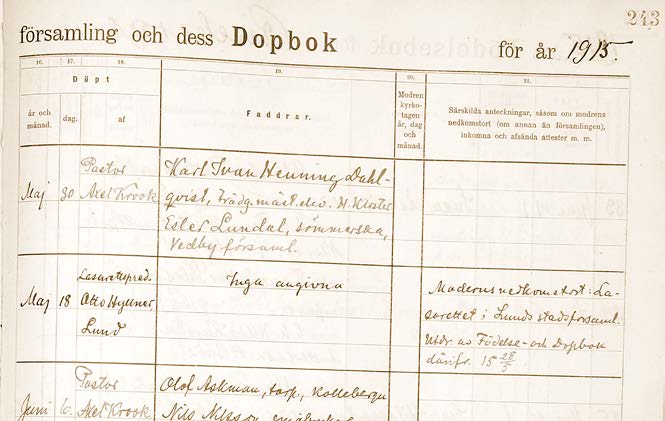 243
församling och dess Dopbok för år 1915.
16. 17. 18. 19. 20. 21.
Döpt
år och månad. dag. af
Faddrar.
Modren kyrkotagen år, dag och månad.
Särskilda anteckningar, såsom om modrens
nedkomstort (om annan än församlingen),
inkomna och afsända attester m. m.
Maj 30 Pastor
Axel Krook
Karl Ivan Henning Dahl-
qvist, trädg.mäst.elev. H. Kloster
Ester Lundal, sömmerska,
Vedby församl.
Maj 18 Lasarettspred.
Otto Hyttner,
Lund
Inga angivna
Moderns nedkomstort: La-
sarettet i Lunds stadsförsaml.
Utdr. av Födelse- och Dopbok
därifr. 15 28/5
Juni 6. Pastor
Axel Krook
Olof Askman, torp., Kolleberga
Nils Nilsson